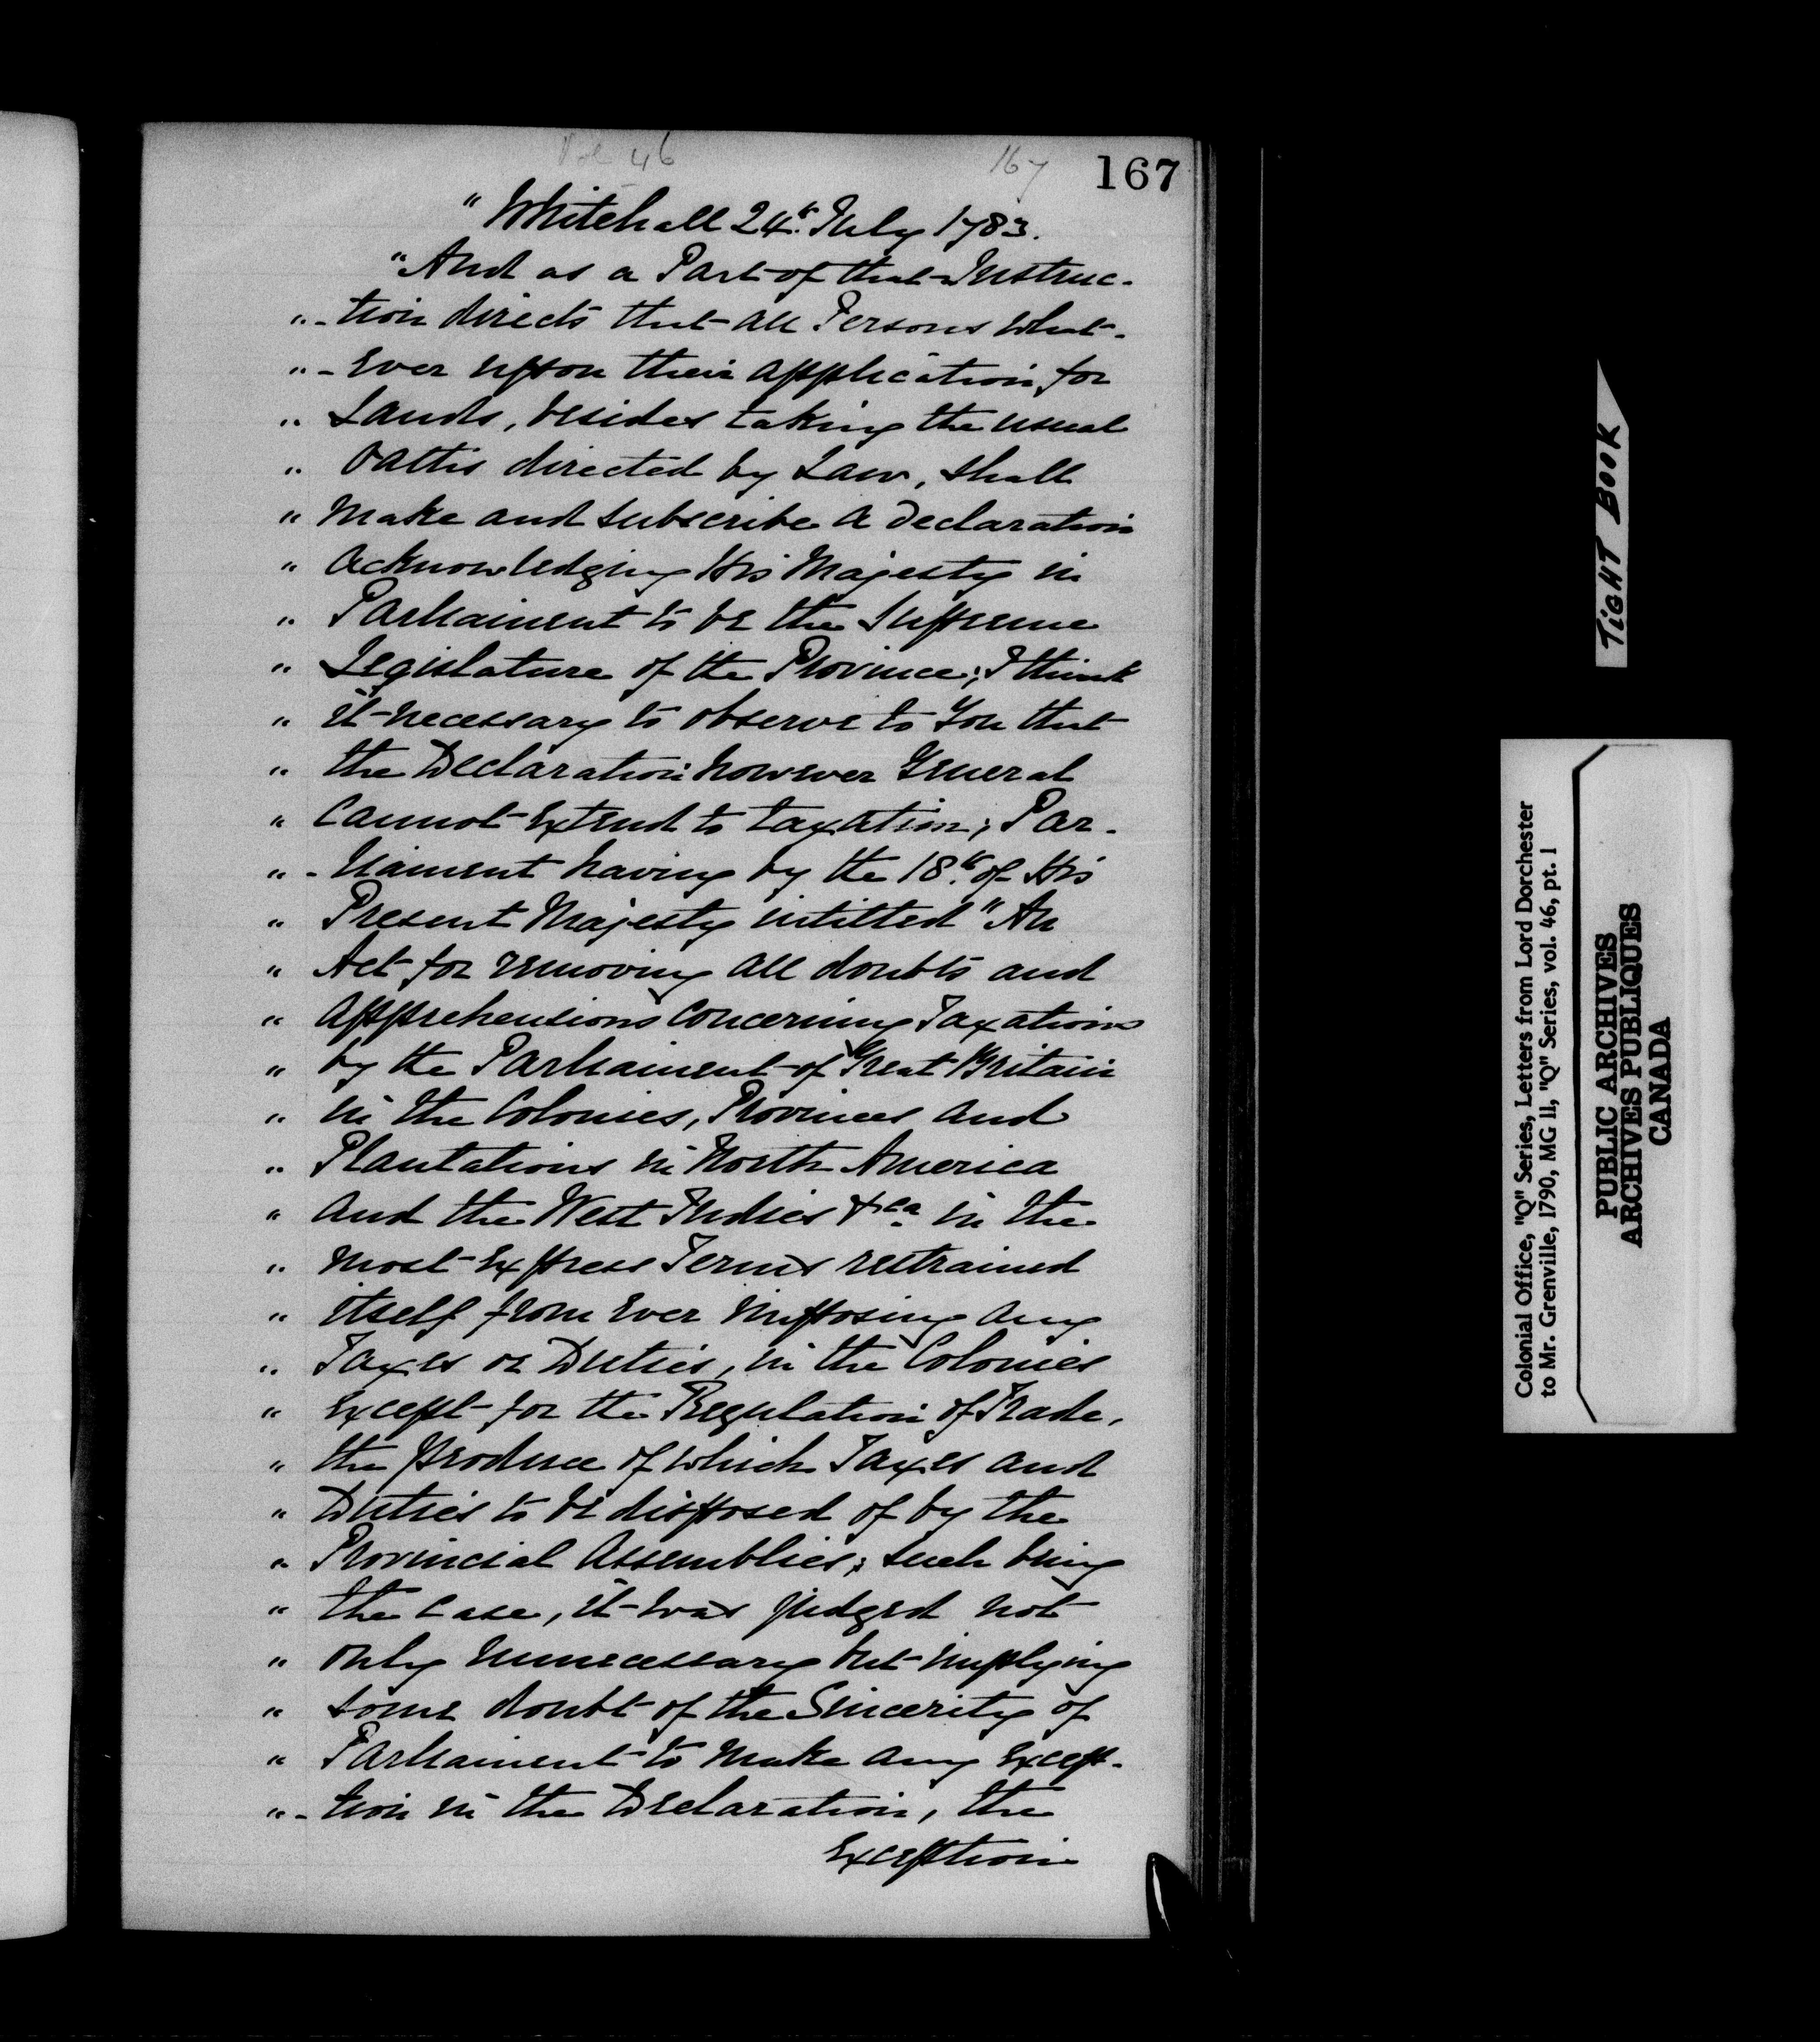 Vol 46
167
167
"Whitehall 24th July 1783.
"And as a Part of that Instruc-
"-tion directs that all Persons what-
"-ever upon their application for
" Lands, besides taking the usual
" Oaths directed by Law, shall
" make and subscribe a declaration
" acknowledging His Majesty in
" Parliament to be the Supreme
" Legislature of the Province; I think
" it necessary to observe to You that
" the Declaration however General
" cannot extend to taxation; Par-
"-liament having by the 18th of His
" Present Majesty intitled "An
" Act for removing all doubts and
" apprehensions concerning Taxation
" by the Parliament of Great Britain
" in the Colonies, Provinces and
" Plantations in North America
" and the West Indies &ca in the
" most express Terms restrained
" itself from ever imposing any
" Taxes or Duties, in the Colonies
" except for the Regulation of Trade,
" the produce of which Taxes and
" Duties to be disposed of by the
" Provincial Assemblies; such being
" the case, it was judged not
" only unnecessary but implying
" some doubt of the Sincerity of
" Parliament to make any excep-
"-tion in the Declaration, the
exception
TiGHT BOOK
Colonial Office, "Q" Series, Letters from Lord Dorchester
to Mr. Grenville, 1790, MG 11, "Q" Series, vol. 46, pt. 1
PUBLIC ARCHIVES
ARCHIVES PUBLIQUES
CANADA